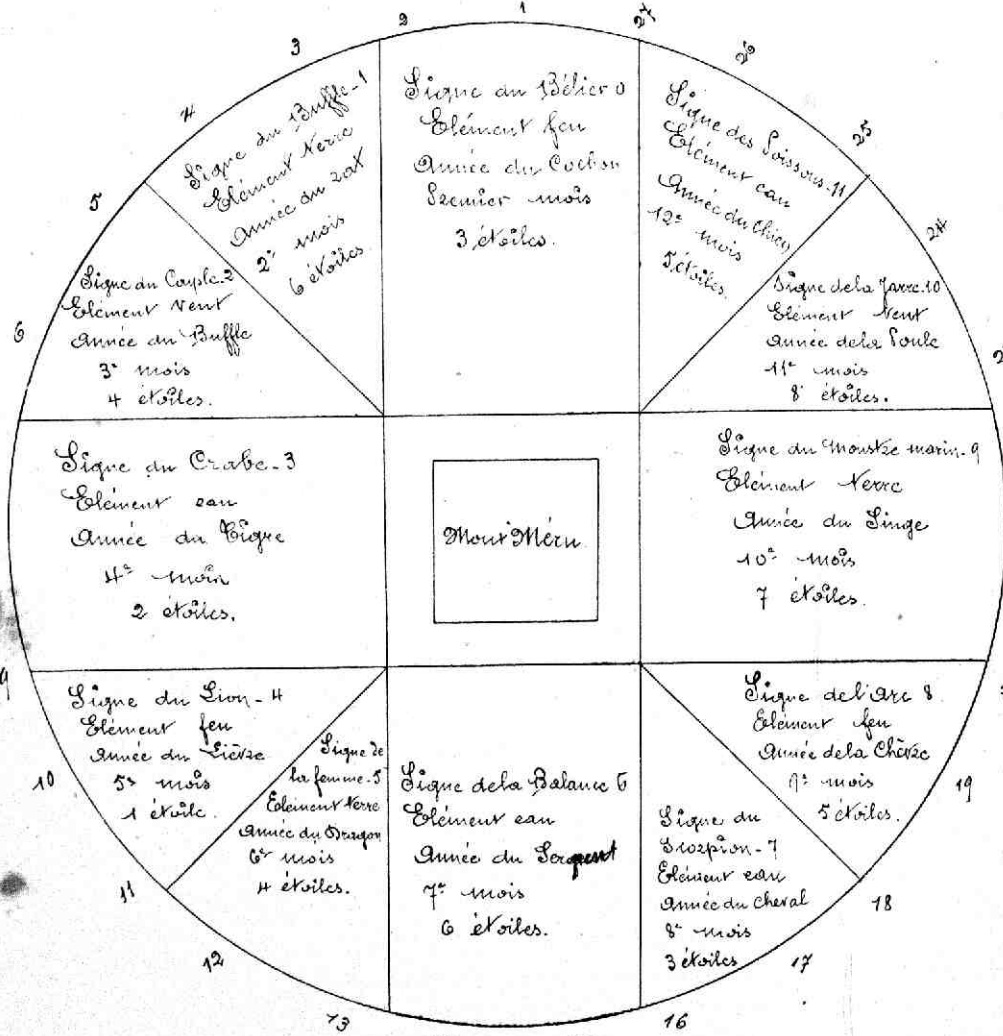 1
2
3
4
5
6
9
10
11
12
13
16
17
18
19
2
24
25
26
27
Signe du Bélier 0
Elément feu
Année du Cochon
Premier mois
3 étoiles.
Signe du Buffle-1
Elément Terre
Année du rat
2e mois
6 étoiles.
Signe du Couple-2
Elément Vent
Année du Buffle
3e mois
4 étoiles.
Signe du Crabe-3
Elément eau
Année du Tigre
4e mois
2 étoiles.
Signe du Lion-4
Elément feu
Année du Lièvre
5e mois
1 étoile.
Signe de
la femme-5
Elément Terre
Année du Dragon
6e mois
4 étoiles.
Signe de la Balance 6
Elément eau
Année du Serpent
7e mois
6 étoiles.
Signe du
Scorpion-7
Elément eau
Année du cheval
8e mois
3 étoiles
Signe de l'arc 8
Elément feu
Année de la Chèvre
9e mois
5 étoiles.
Signe du monstre marin-9
Elément Terre
Année du Singe
10e mois
7 étoiles.
Signe de la Jarre.10
Elément Vent
Année de la Poule
11e mois
8 étoiles.
Signe des Poissons-11
Elément eau
Année du Chien
12e mois
5 étoiles.
Mont Méru